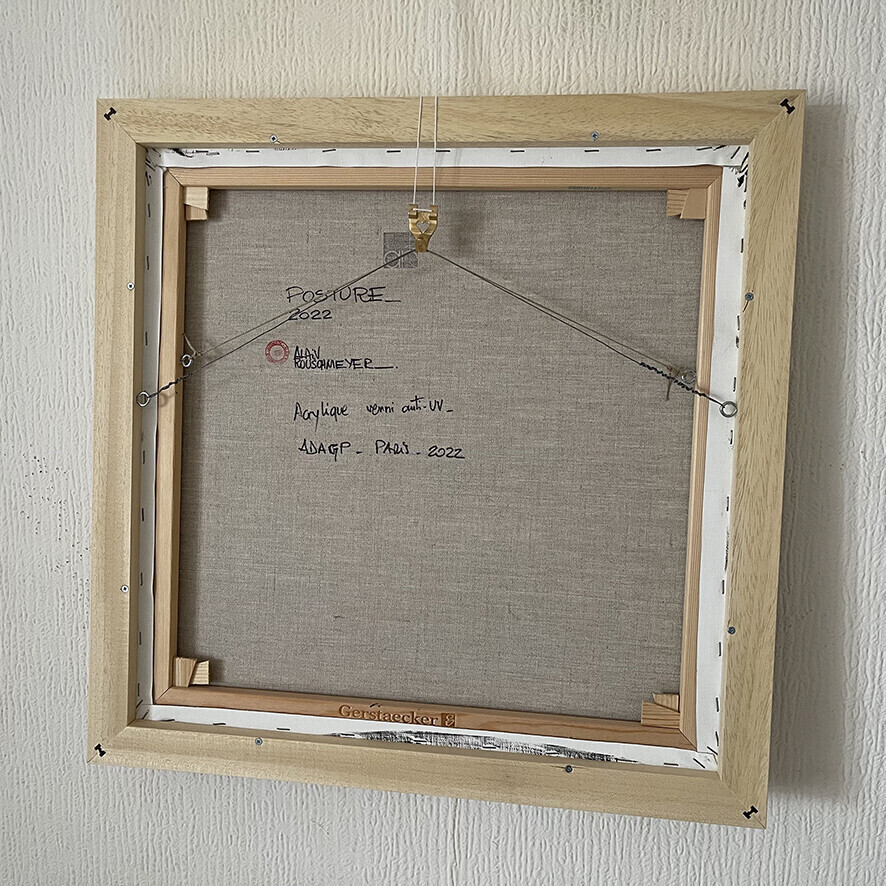 POSTURE_
2022
ALAIN
ROUSCHMEYER_.
Acrylique verni anti-UV_
ADAGP_ PARIS_ 2022
Gerstaecker